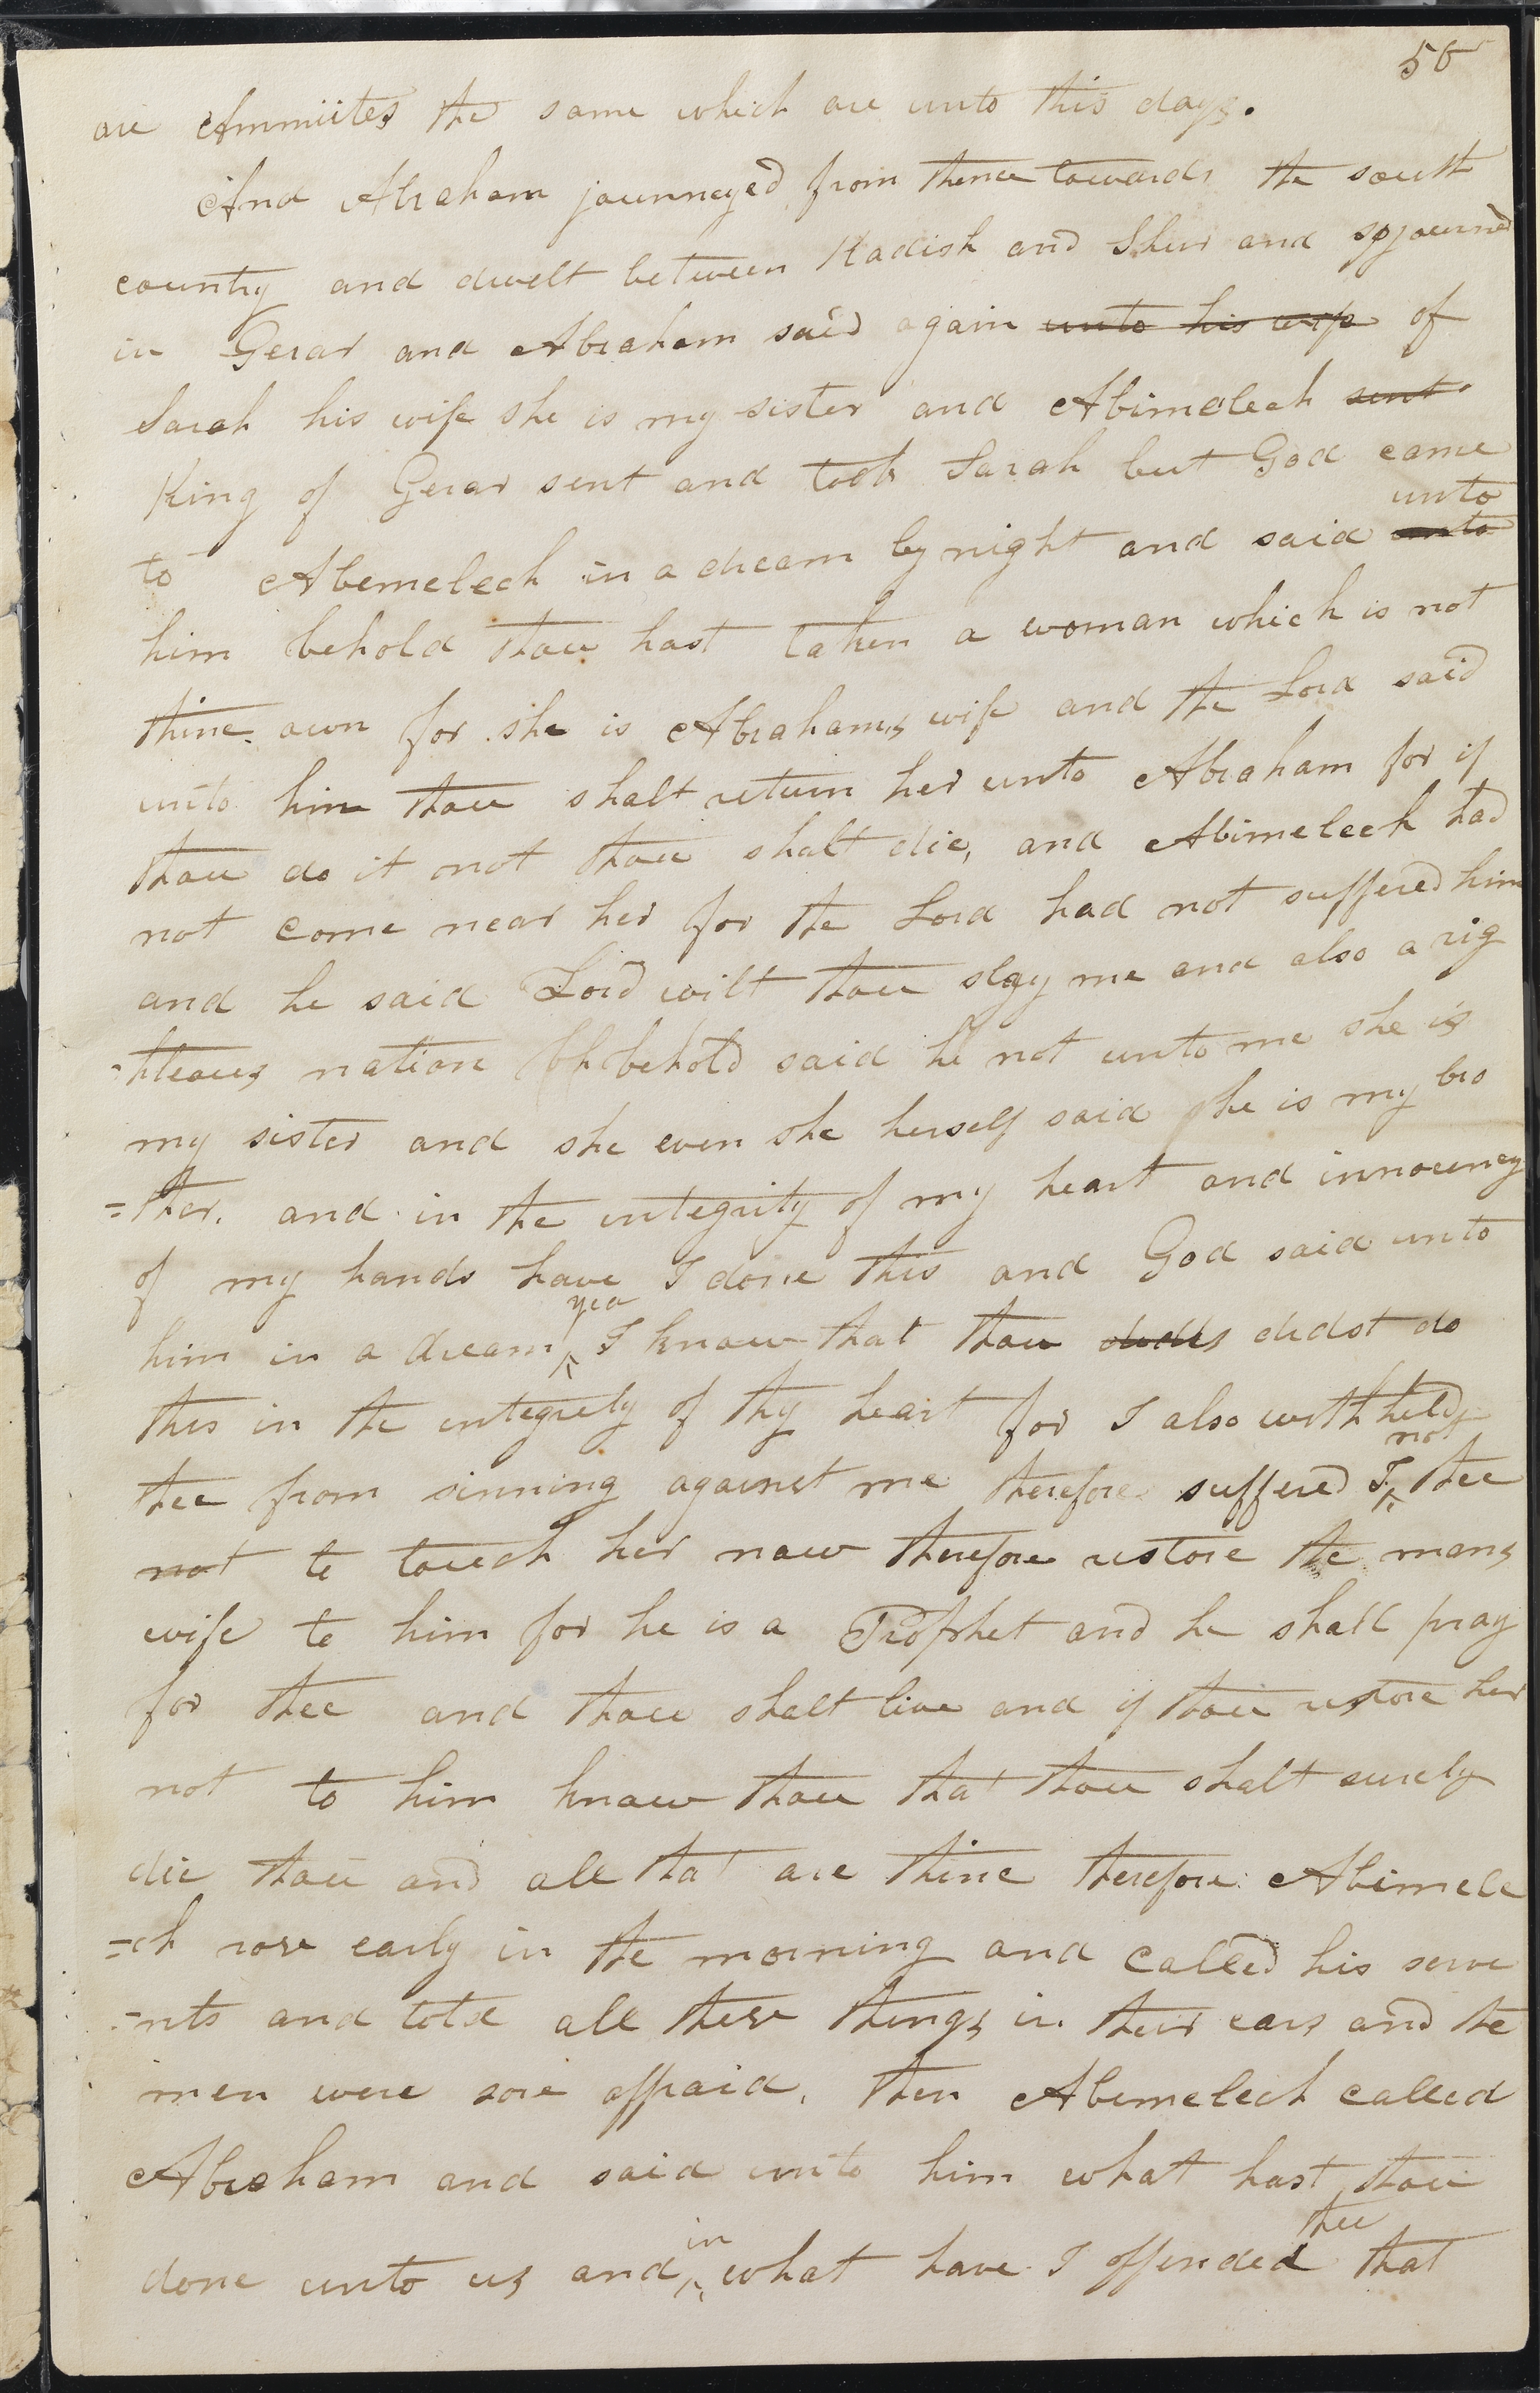 56
are Ammiites the same which are unto this days.
And Abraham journeyed from thence towards the south
country and dwelt between Kadish and Shur and sojourned
in Gerar and Abraham said again unto his wife of
Sarah his wife she is my sister and Abimelech sent
King of Gerar sent and took Sarah but God came
unto
to Abemelech in a dream by night and said unto
him behold thou hast taken a woman which is not
thine own for she is Abrahams wife and the Lord said
unto him thou shalt return her unto Abraham for if
thou do it not thou shalt die, and Abimeleck had
not come near her for the Lord had not suffered him
and he said Lord wilt thou slay me and also a rig
-hteous nation behold said he not unto me she is
my sister and she even she herself said he is my bro
=ther. and in the integrity of my heart and innocency
of my hands have I done this and God said unto
yea
him in a dream ^ I know that thou didst do
this in the integrety of thy heart for I also withheld
not
thee from sinning against me therefore suffered I ^ thee
not to touch her now therefore restore the mans
wife to him for he is a Prophet and he shall pray
for thee and thou shalt live and if thou restore her
not to him know thou that thou shalt surely
die thou and all that are thine therefore Abimele
=ch rose early in the morning and called his serve
-nts and told all these things in their ears and the
men were sore affraid. then Abemelech called
Abraham and said unto him what hast thou
in thee
done unto us and ^ what have I offended that